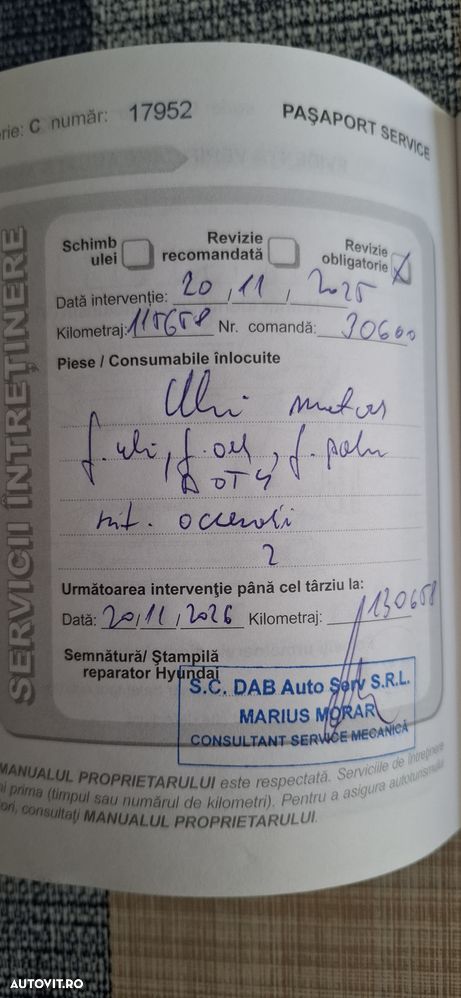 rie: C număr: 17952
PAȘAPORT SERVICE
SERVICII ÎNTREȚINERE
Schimb ulei
Revizie recomandată
Revizie obligatorie X
Dată intervenție: 20 / 11 / 2025
Kilometraj: 115658 Nr. comandă: 30600
Piese / Consumabile înlocuite
Ulei motor
f. ulei, f. aer, f. polen
DOT4
2
Următoarea intervenție până cel târziu la:
Dată: 20/11/2026 Kilometraj: 130658
Semnătură/ Ștampilă
reparator Hyundai
S.C. DAB Auto Serv S.R.L.
MARIUS MORAR
CONSULTANT SERVICE MECANICĂ
MANUALUL PROPRIETARULUI este respectată. Serviciile de întreținere
prima (timpul sau numărul de kilometri). Pentru a asigura autoturismului
ori, consultați MANUALUL PROPRIETARULUI.
AUTOVIT.RO